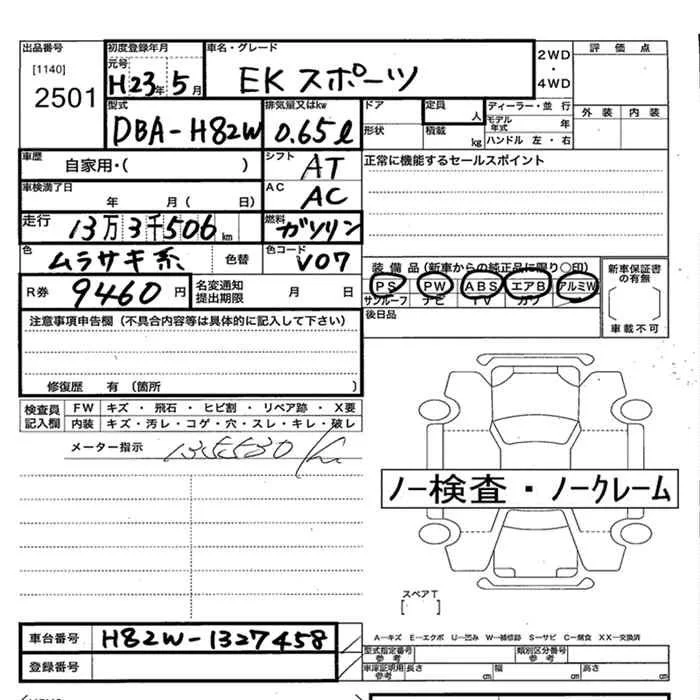 出品番号 初度登録年月 車名・グレード 2WD・4WD 評価点
[1140] 元号
2501 H23年 5月 EK スポーツ
型式 排気量又はkw ドア 定員 人 ディーラー・並行 外装 内装
DBA-H82W 0.65ℓ 形状 積載 kg モデル年式 年
ハンドル 左・右
車歴 自家用・( ) シフト AT 正常に機能するセールスポイント
車検満了日 年 月( 日) AC AC
走行 13万3千506km 燃料 ガソリン
色 ムラサキ系 色替 色コード V07
装備品(新車からの純正品に限り○印) 新車保証書の有無
R券 9460円 名変通知提出期限 月 日 PS PW ABS エアB アルミW
サンルーフ ナビ TV カワ
[ ]
後日品 車載不可
注意事項申告欄(不具合内容等は具体的に記入して下さい)
修復歴 有(箇所 )
検査員記入欄 FW キズ・飛石・ヒビ割・リペア跡・X要
内装 キズ・汚レ・コゲ・穴・スレ・キレ・破レ
メーター指示
ノー検査・ノークレーム
スペアT
[ ]
車台番号 H82W-1327458
登録番号
A―キズ E―エクボ U―凹み W―補修跡 S―サビ C―腐食 XX―交換済
型式指定番号 参考 類別区分番号 参考
車庫証明用 参考 長さ cm 幅 cm 高さ cm